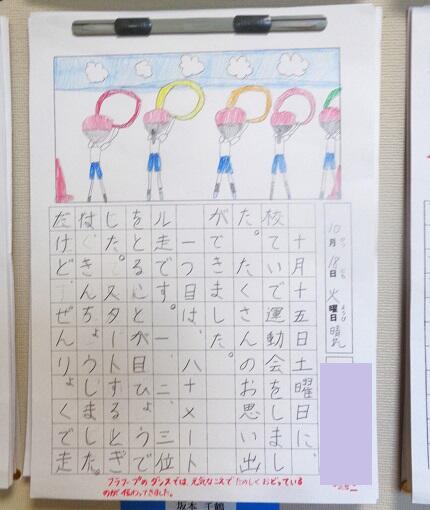 10月18日火曜日 晴れ
十月十五日土曜日に、
校ていで運動会をしまし
た。たくさんのお思い出
ができました。
一つ目は、八十メート
ル走です。一、二、三位
をとることが目ひょうで
した。スタートするとき
はきんちょうしました。
だけど、ぜんりょくで走
フラフープのダンスでは、元気なこえでたのしくおどっている
のが伝わってきました。
坂本 千鶴